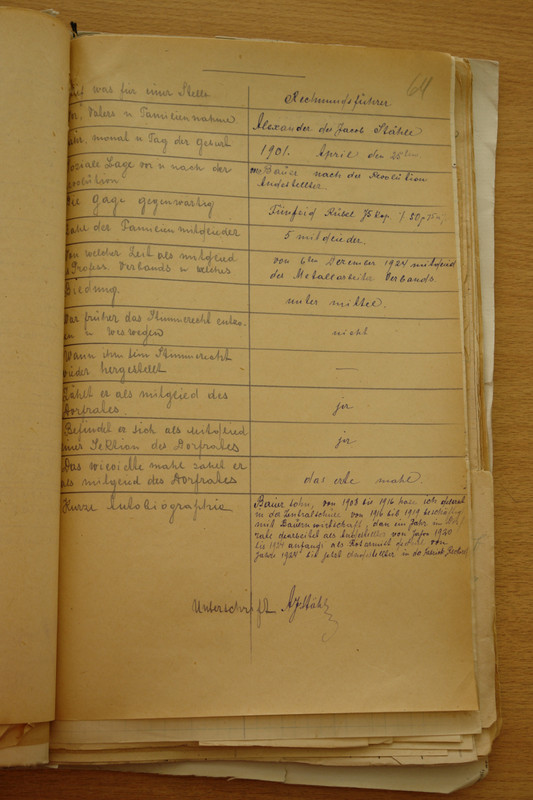 64
was für einer Stelle
Rechnungsführer
Vaters u Familiennahme
Alexander des Jacob Stähle
monat u Tag der geburt
1901. April den 25
soziale Lage vor u nach der
Revolution
Bauer nach der Revolution
Angestellter.
Die Gage gegenwärtig
Fünfzig Rubel 75 kop.
Zahl der Familienmitglieder
5 mitglieder.
Von welcher Zeit als mitglied
des Profess. Verbands u welches
von 6ten Dezember 1924 mitglied
des Metallarbeiter Verbands.
Bildung.
unter mittel.
War früher das Stimmrecht entzo-
gen u weswegen
nicht
Wann ihm sein Stimmrecht
wieder hergestellt
—
Zählt er als mitglied des
Dorfrates.
ja
Befindet er sich als mitglied
einer Sektion des Dorfrates
ja
Das wievielte mahl zählt er
als mitglied des Dorfrates
das erste mahl.
Kurze Autobiographie
Bauer sohn, von 1908 bis 1916 habe ich gelernt
in der Zentralschule von 1916 bis 1919 beschäftigt
mit Bauernwirtschaft, dan ein Jahr im
als Angestellter von Jahr 1920
bis 1924 anfangs als Rotarmist gedient von
Jahre 1924 bis jetzt Angestellter in der
Unterschrift A Stähle